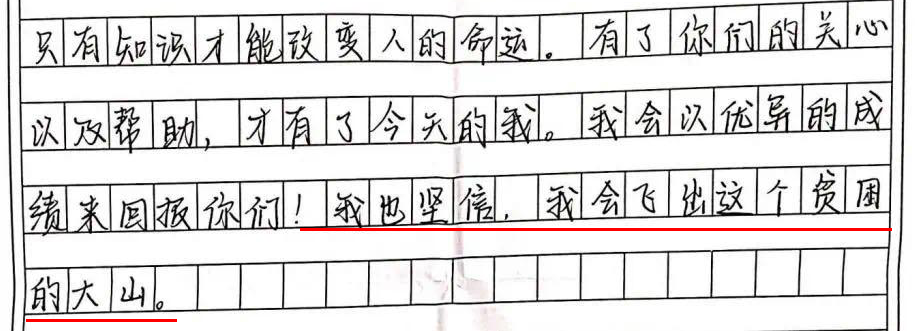 只有知识才能改变人的命运。有了你们的关心
以及帮助,才有了今天的我。我会以优异的成
绩来回报你们!我也坚信,我会飞出这个贫困
的大山。